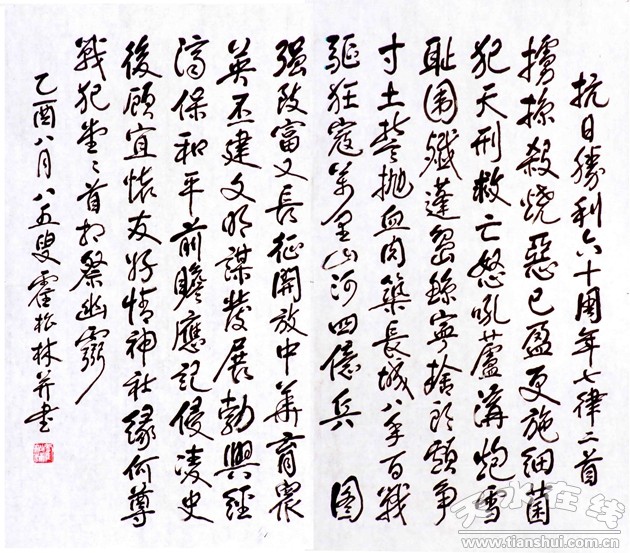 抗日勝利六十周年七律二首
擄掠殺燒惡已盈更施細菌
犯天刑救亡怒吼蘆溝炮雪
耻围殲蓬島鯨寧捨头顱争
寸土誓抛血肉築長城八年百戰
驅狂寇萬里山河四億兵 图
强致富又長征開放中華育衆
英丕建文明謀發展勃興經
濟保和平前瞻應記侵凌史
後顧宜懷友好情神社緣何尊
戰犯堂〻首相祭幽靈
乙酉八月八五叟霍松林并书
天水在线
www.tianshui.com.cn